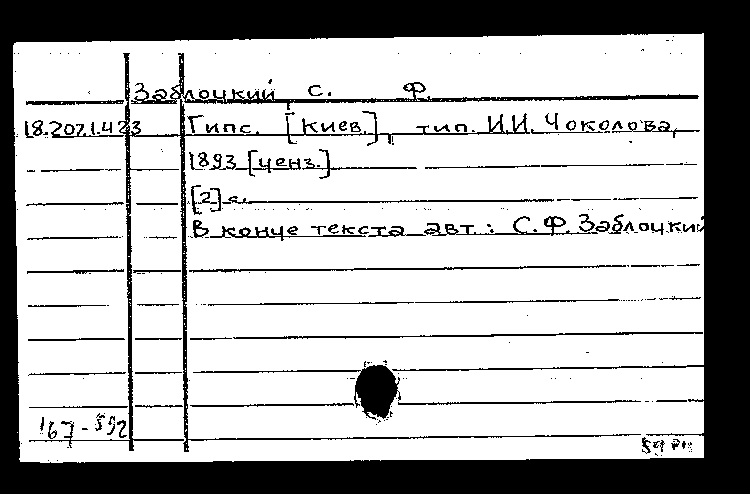 Заблоцкий С. Ф.
18.207.1.423 Гипс. [Киев.], тип. И.И. Чоколова,
1893 [ценз.]
[2] с.
В конце текста авт.: С.Ф. Заблоцкий
167-592